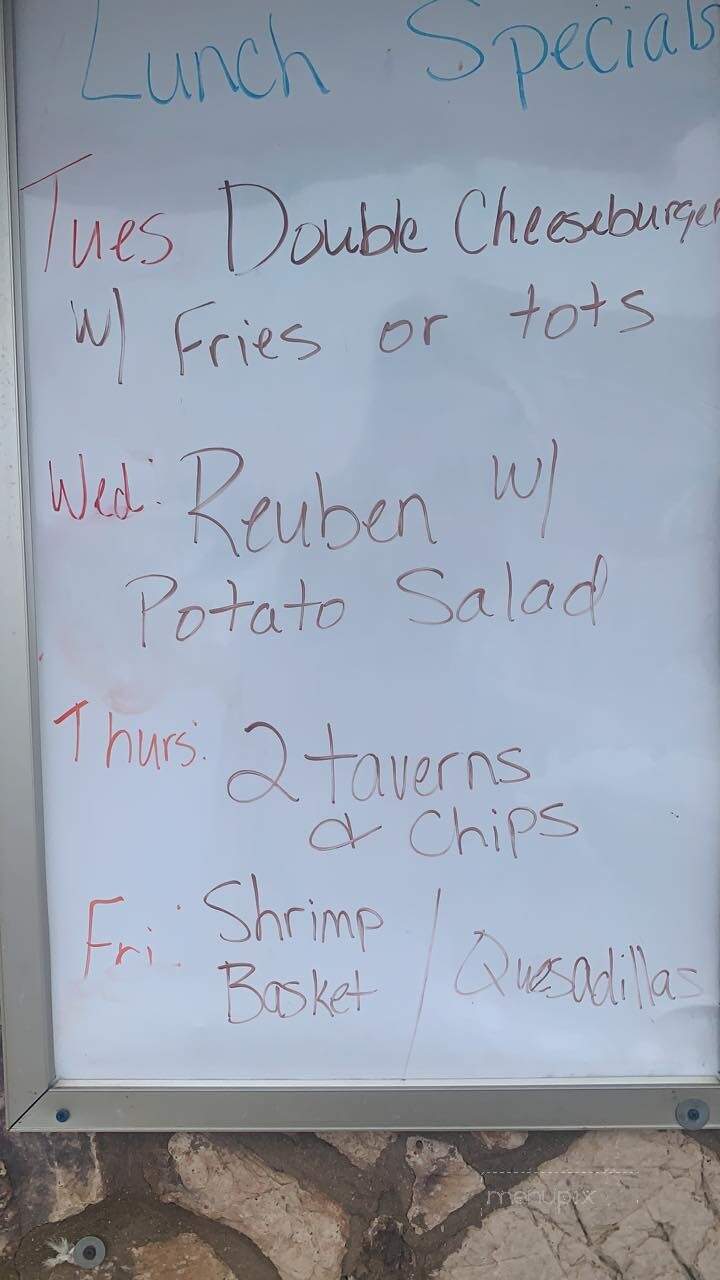 Lunch Specials
Tues Double Cheeseburger
w/ Fries or tots
Wed: Reuben w/
Potato Salad
Thurs: 2 taverns
& Chips
Fri: Shrimp
Basket / Quesadillas
menupix